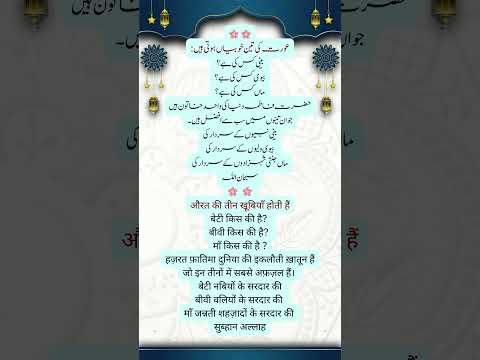 عورت کی تین خوبیاں ہوتی ہیں:
بیٹی کس کی ہے؟
بیوی کس کی ہے؟
ماں کس کی ہے؟
حضرت فاطمہ دنیا کی واحد خاتون ہیں
جو ان تینوں میں سب سے افضل ہیں۔
بیٹی نبیوں کے سردار کی
بیوی ولیوں کے سردار کی
ماں جنتی شہزادوں کے سردار کی
سبحان اللہ
औरत की तीन खूबियाँ होती हैं
बेटी किस की है?
बीवी किस की है?
माँ किस की है ?
हज़रत फ़ातिमा दुनिया की इकलौती ख़ातून हैं
जो इन तीनों में सबसे अफ़ज़ल हैं।
बेटी नबियों के सरदार की
बीवी वलियों के सरदार की
माँ जन्नती शहज़ादों के सरदार की
सुब्हान अल्लाह